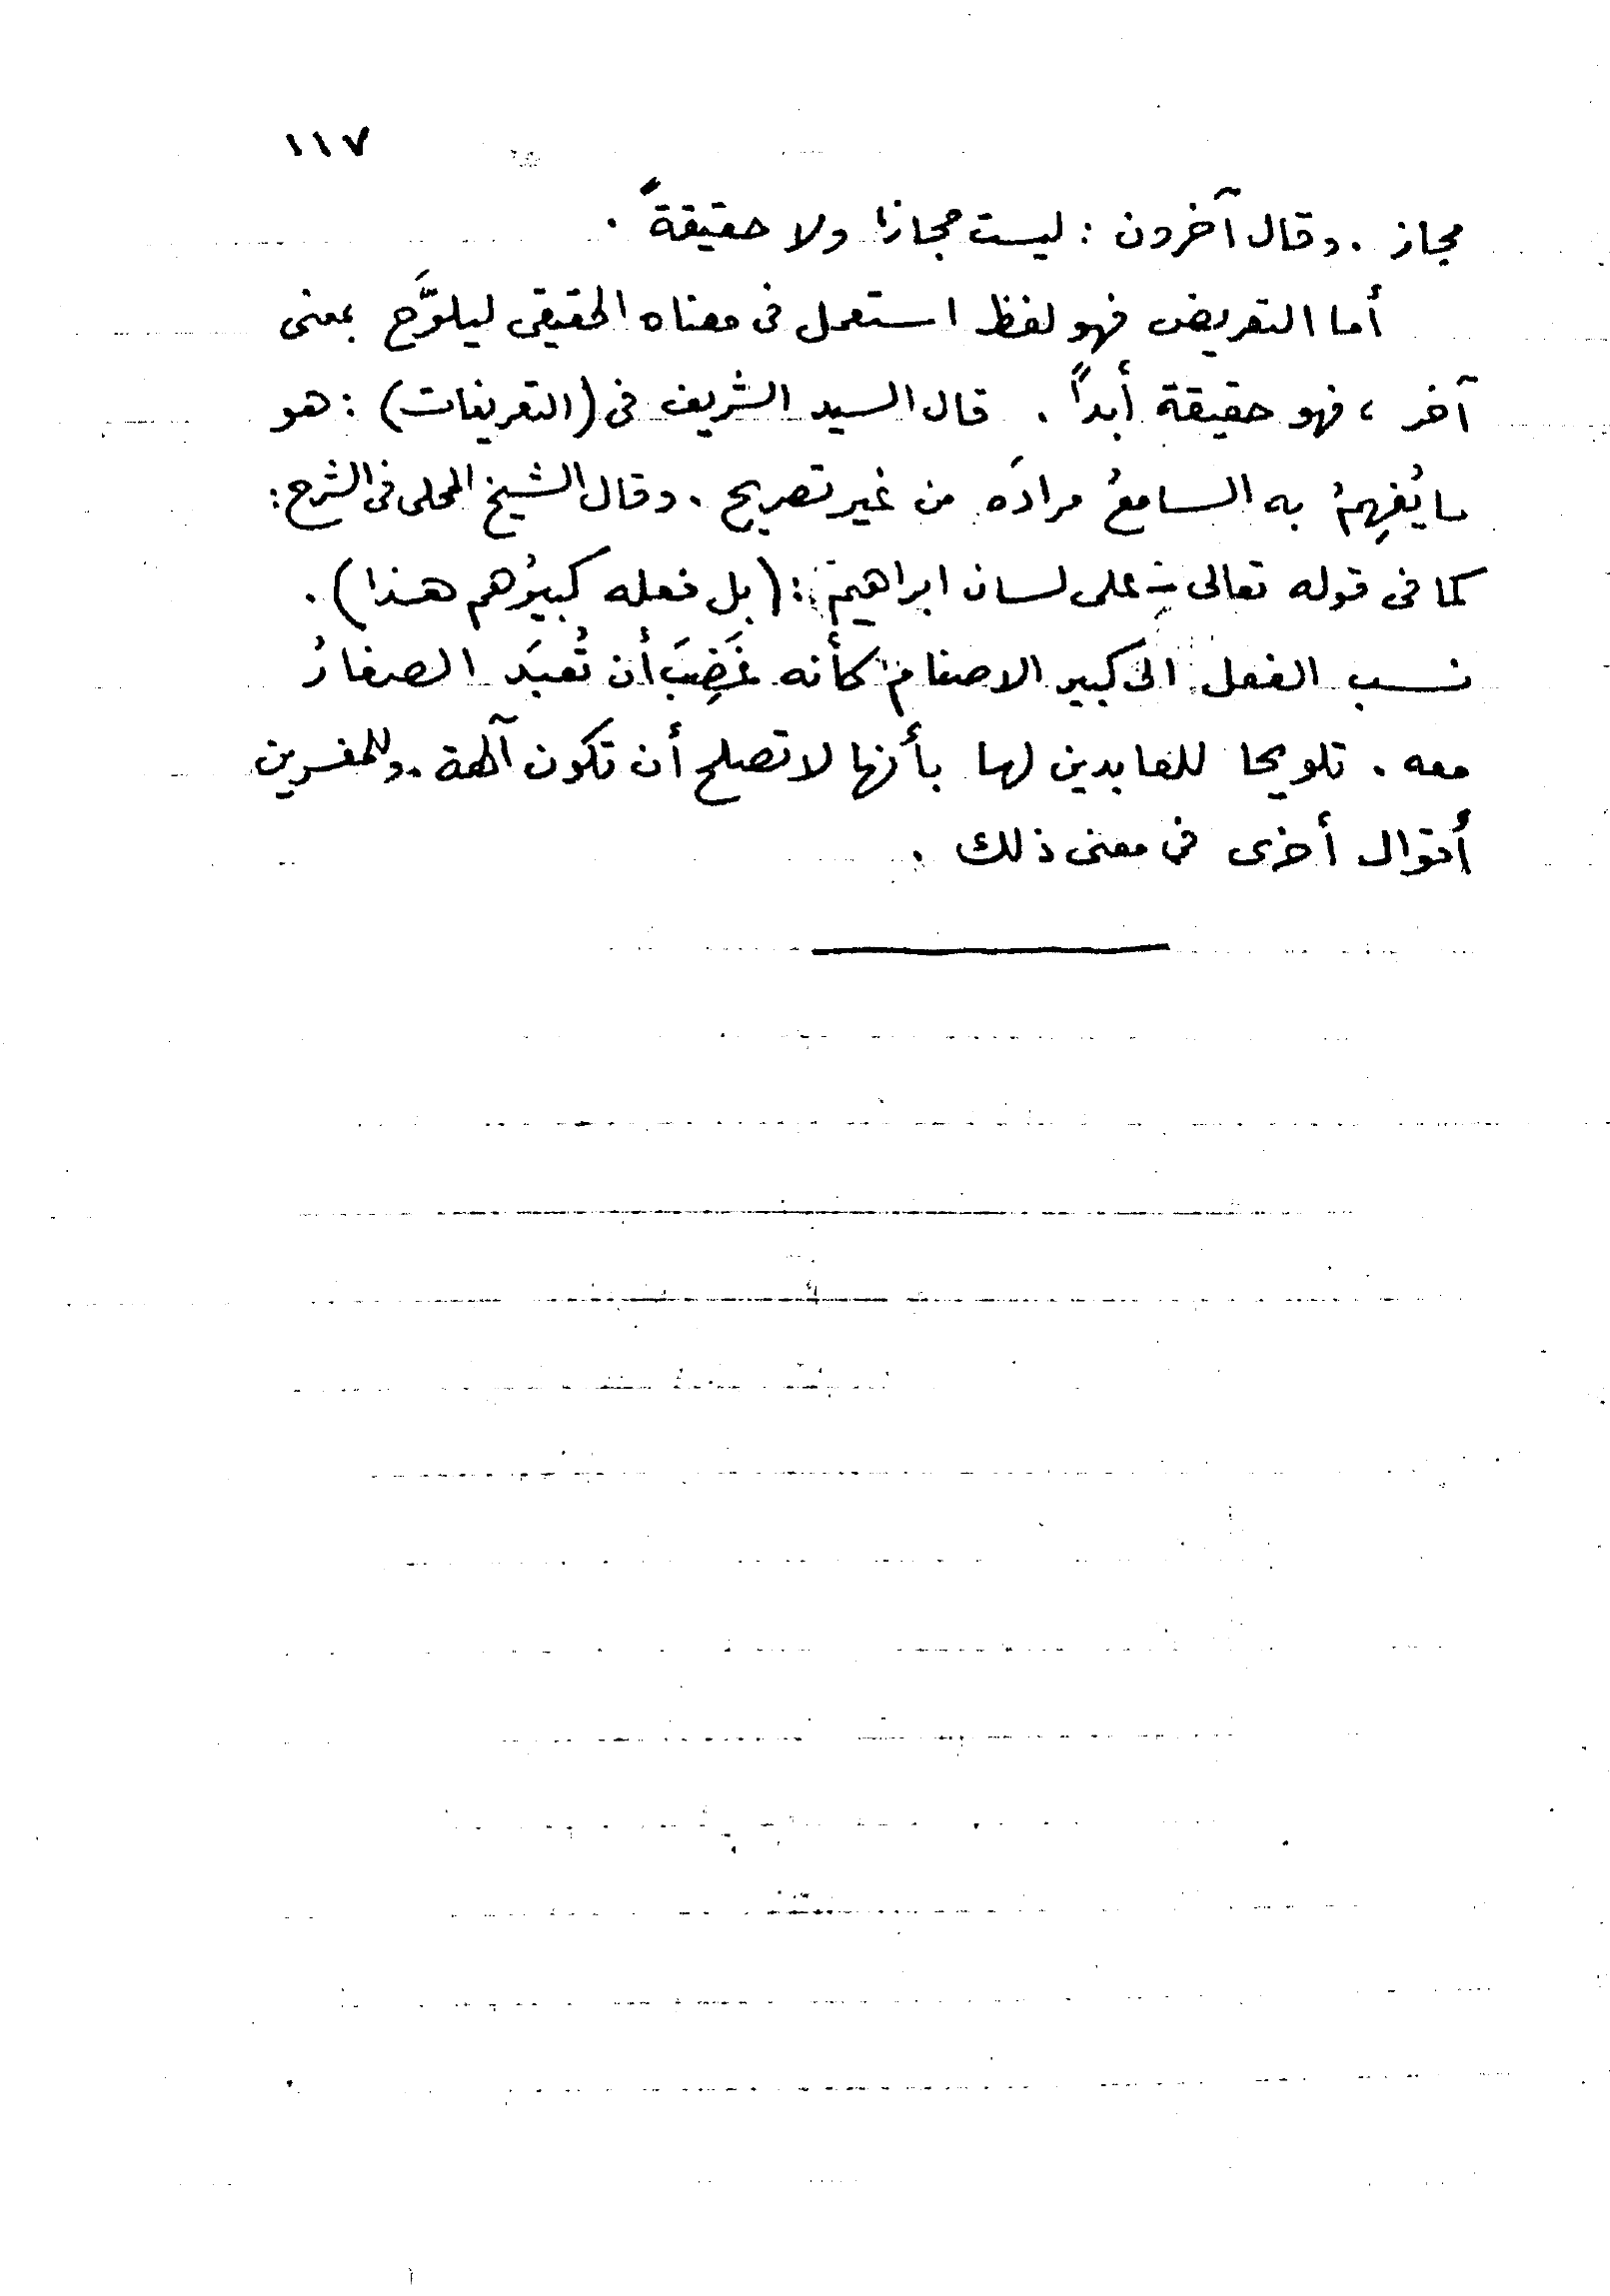 ١١٧
مجاز . وقال آخرون : ليست مجازا ولا حقيقةً .
أما التعريض فهو لفظ استعمل فى معناه الحقيقى ليلوَّح بمعنى
آخر ، فهو حقيقة أبداً . قال السيد الشريف فى (التعريفات) : هو
ما يُفهِمُ به السامعُ مرادَه من غير تصريح . وقال الشيخ المحلى فى الشرح :
كما فى قوله تعالى - على لسان ابراهيم : (بل فعله كبيرُهم هذا) .
نسب الفعل الى كبير الاصنام كأنه غَضِبَ أن تُعبَد الصغارُ
معه . تلويحا للعابدين لها بأنها لا تصلح أن تكون آلهة . وللمفسرين
أقوال أخرى فى معنى ذلك .